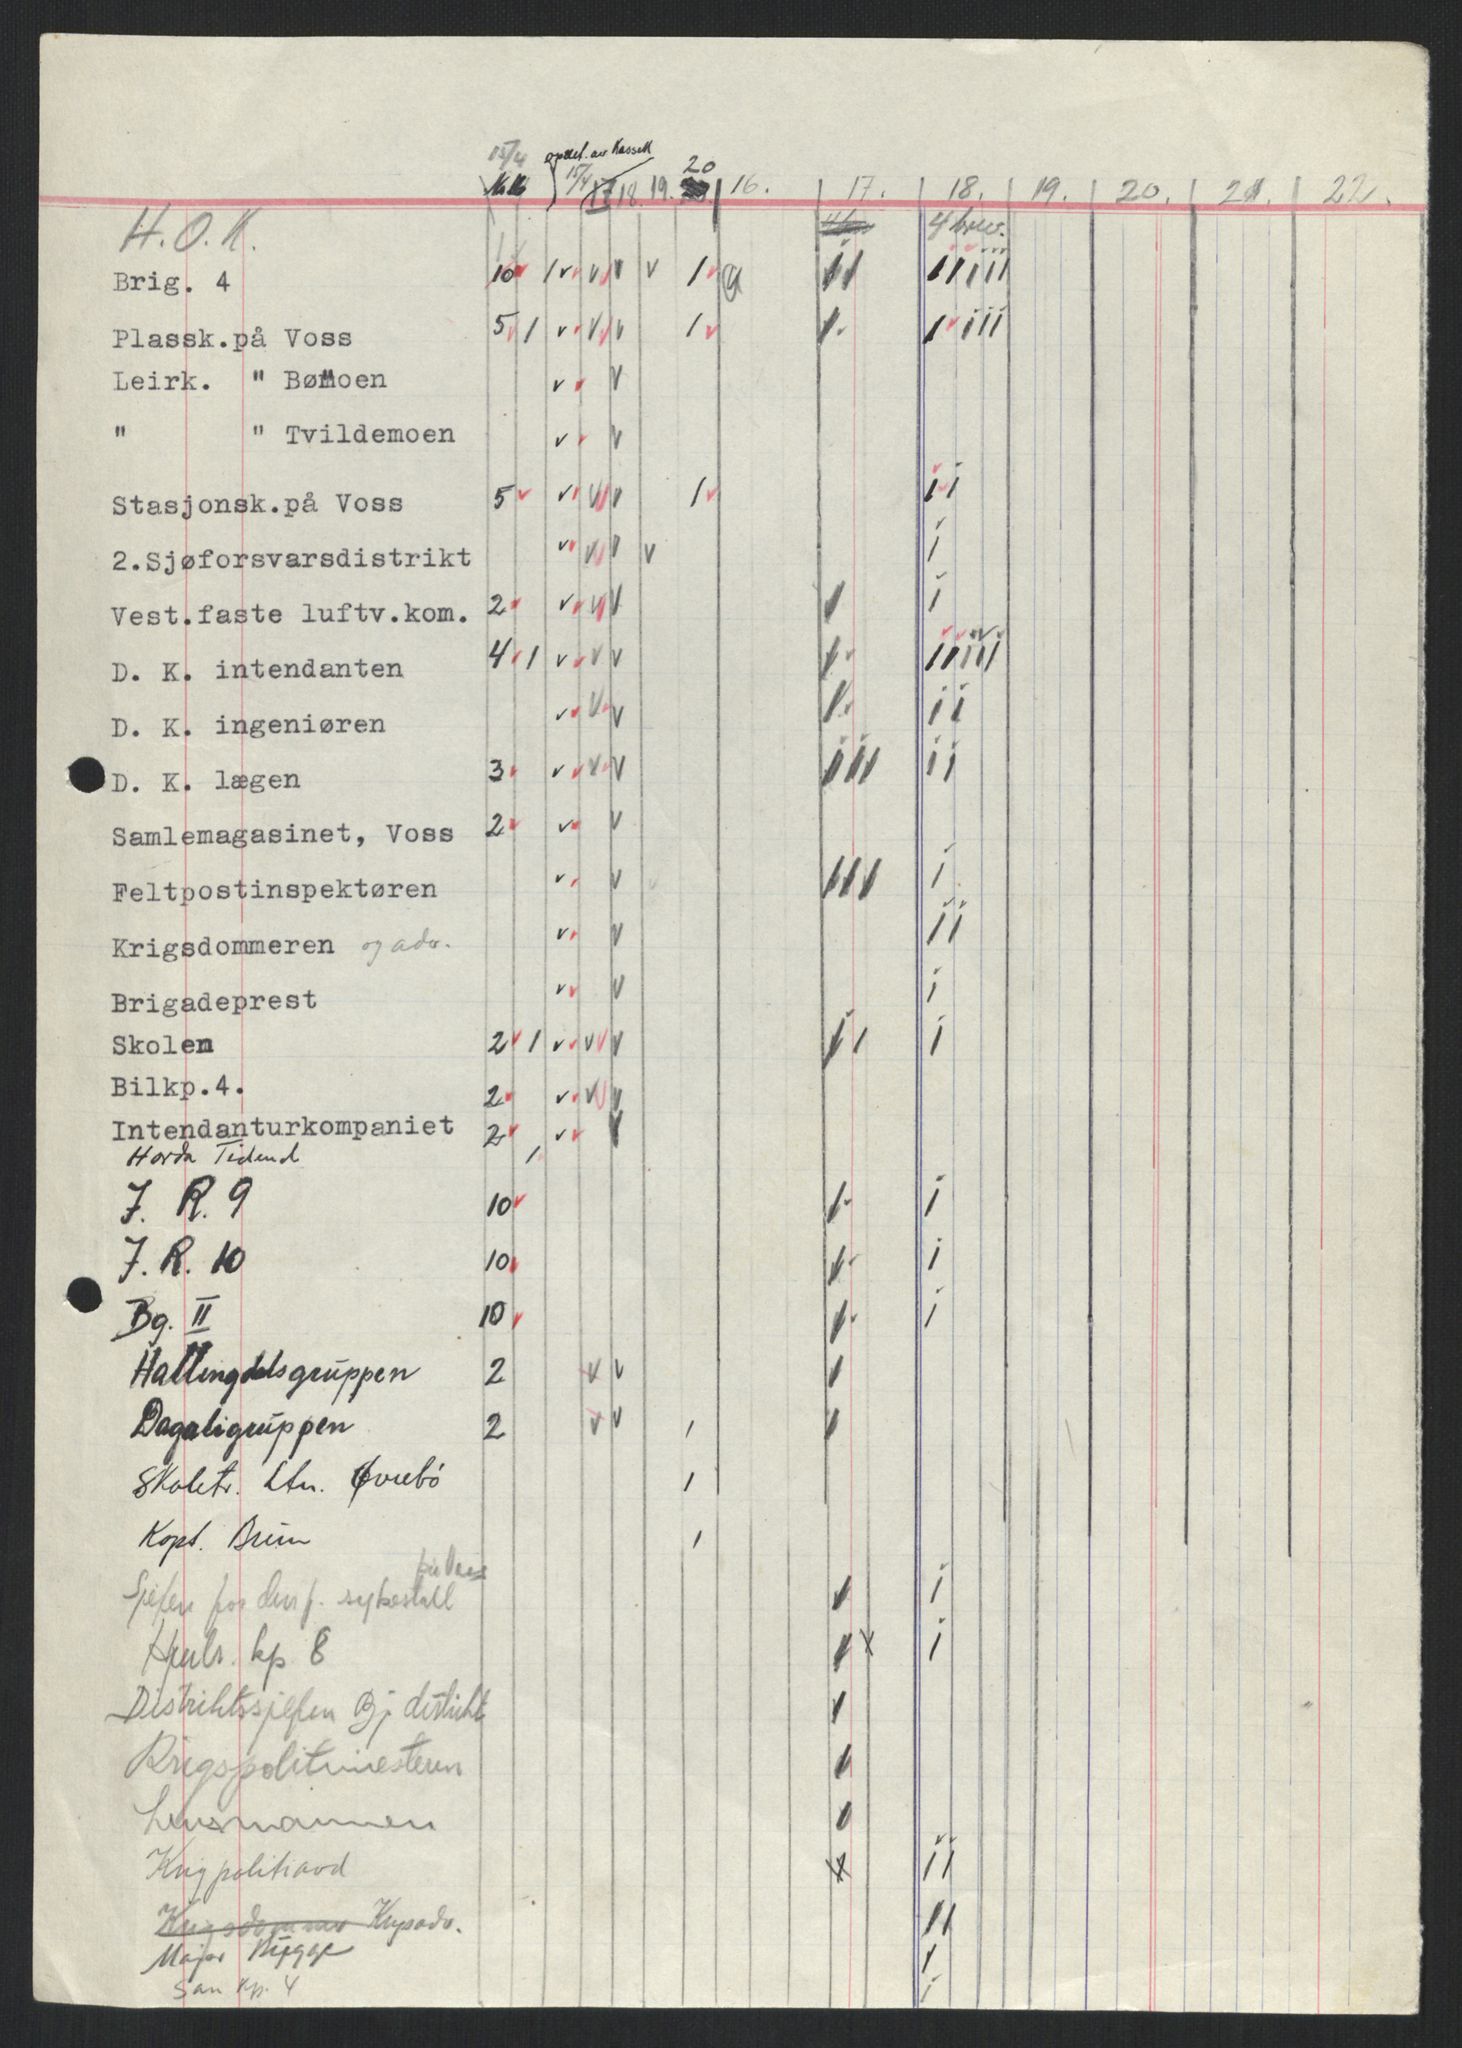 15/4 opdel. av Kassell 20
15/4 17 18. 19. 16. 17. 18. 19. 20. 21. 22.
H.O.K. 4 brev.
Brig. 4 10 1 1
Plassk.på Voss 5 1 1
Leirk. " Bømoen
" " Tvildemoen
Stasjonsk.på Voss 5 1
2.Sjøforsvarsdistrikt
Vest.faste luftv.kom. 2
D. K. intendanten 4 1
D. K. ingeniøren
D. K. lægen 3
Samlemagasinet, Voss 2
Feltpostinspektøren
Krigsdommeren og adv.
Brigadeprest
Skolen 2 1
Bilkp.4. 2
Intendanturkompaniet 2
Horda Tidend 1
J. R. 9 10
J. R. 10 10
Bg. II 10
Hallingdalsgruppen 2
Dagaligruppen 2 1
Skoletr. Ltn. Øvrebö 1
Kapt. Brun 1
Sjefen for den f. sykestall
Hjulr. kp 8
Distriktssjefen Bj distrikt
Krigspolitimesteren
Lensmannen
Krigpolitiavd
Krigsdommer Krpsadv.
Major Bigge
San kp. 4